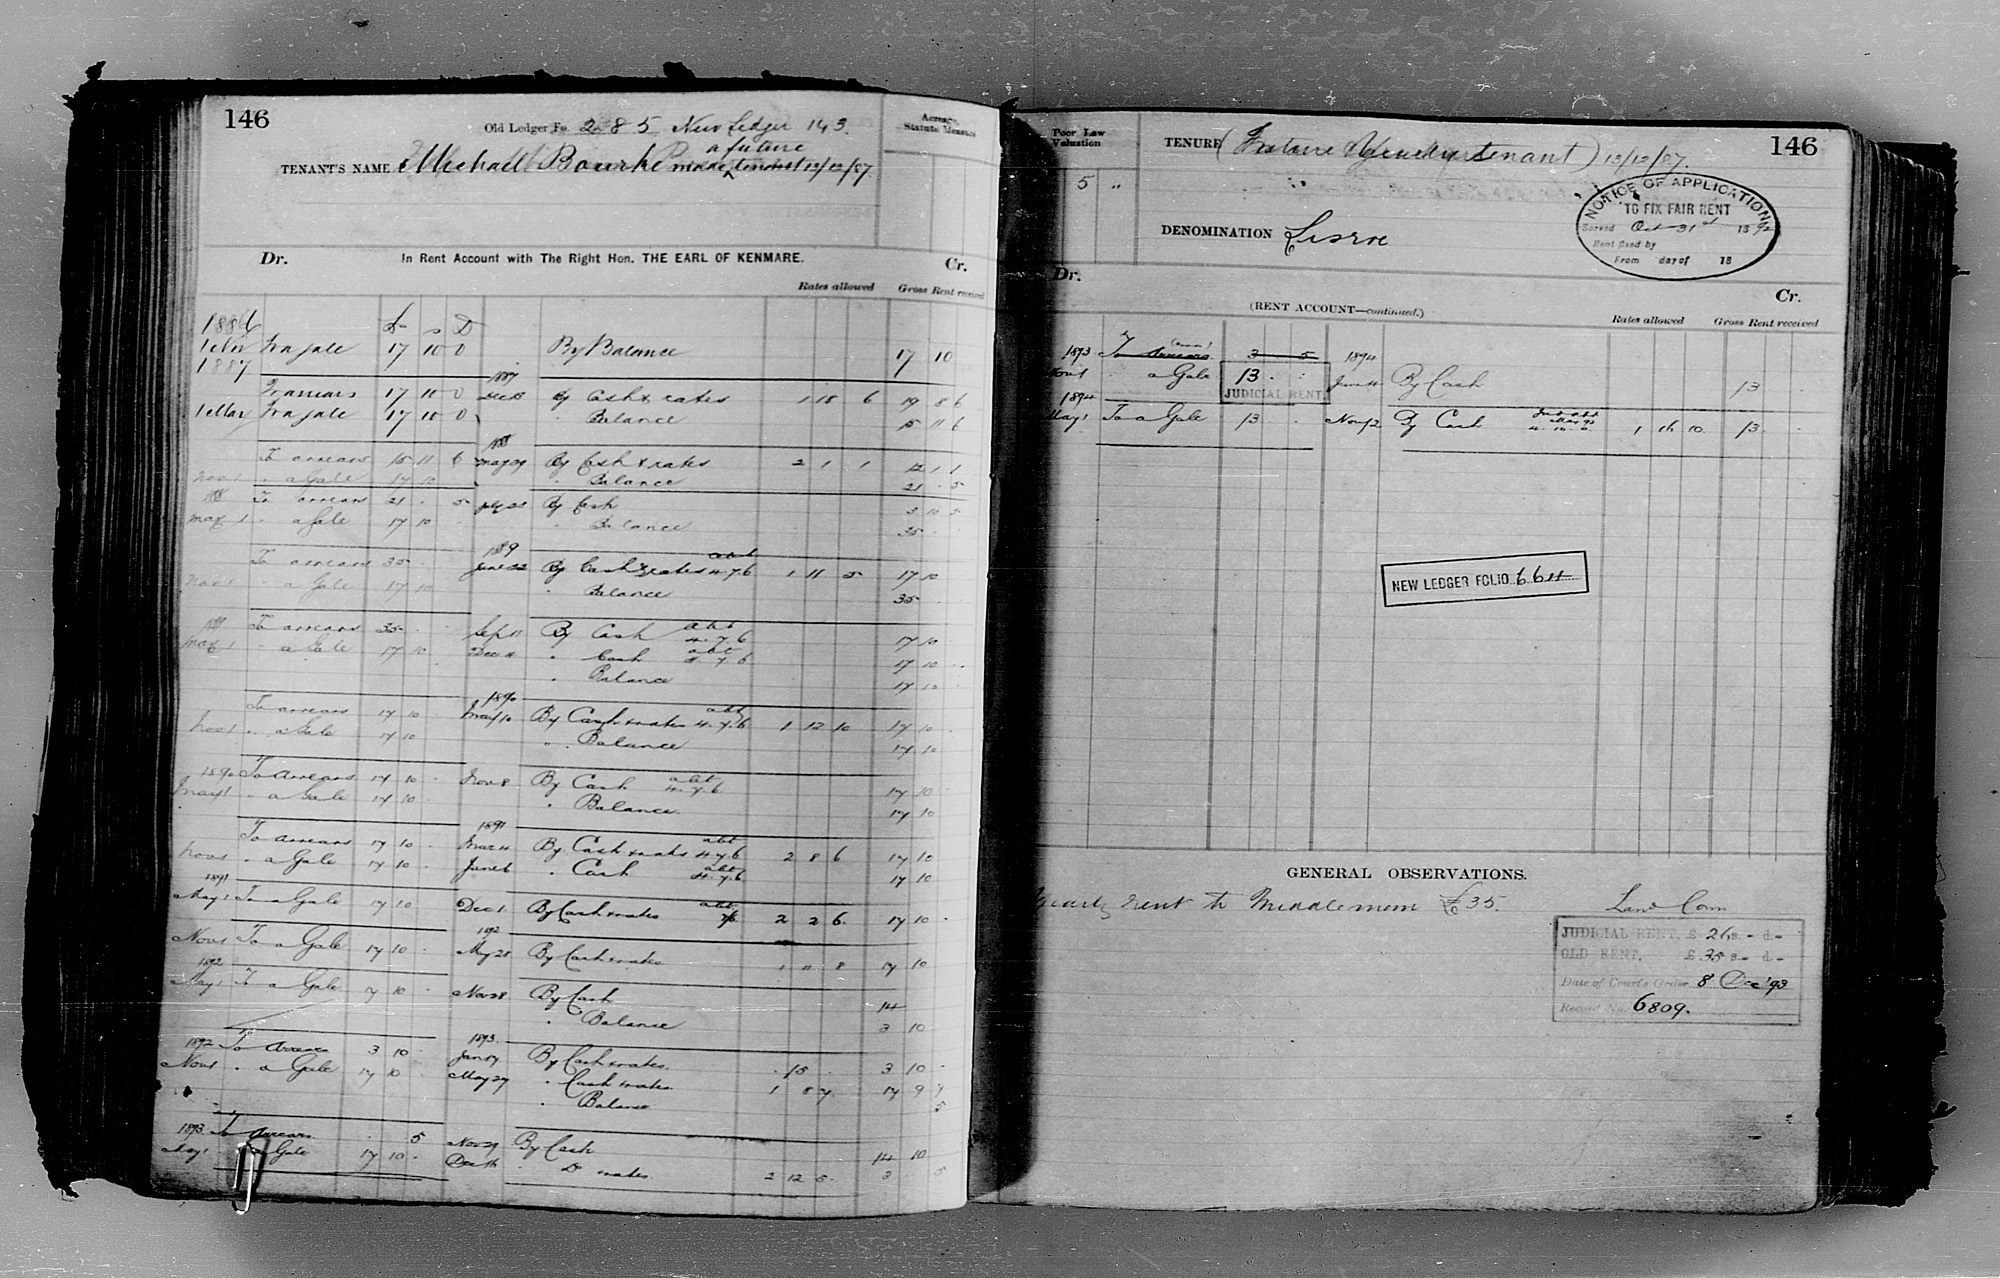 146
Old Ledger Fo. 285 New Ledger 143.
Acreage,
Statute Measure
a future
TENANT'S NAME Michael Bourke made tenant 13/12/87.
Dr. In Rent Account with The Right Hon. THE EARL OF KENMARE. Cr.
Rates allowed Gross Rent received
£ s D
1 Nov a gale 17 10 0 By Balance 17 10
1887 1887
To arrears 17 10 0 By Cash & rates 1 18 6 19 8 6
1 May a gale 17 10 0 Balance 15 11 6
To arrears 15 11 6 May 29 By Cash & rates 2 1 1 12 1 1
Nov 1 " a Gale 17 10 " Balance 21 . 5
1888 To arrears 21 . 5 By Cash 3 10 5
May 1 " a Gale 17 10 " Balance 35
1889
To arrears 35 June 22 By Cash & rates abt 4.7.6 1 11 5 17 10
Nov 1 " a Gale 17 10 " Balance 35
To arrears 35 Sep 11 By Cash abt 4.7.6 17 10
May 1 " a Gale 17 10 Dec 11 " Cash abt 4.7.6 17 10
" Balance 17 10
1890
To arrears 17 10 May 10 By Cash & rates abt 4.7.6 1 12 10 17 10
Nov 1 " a Gale 17 10 " Balance 17 10
1890 To arrears 17 10 Nov 8 By Cash abt 4.7.6 17 10
May 1 " a Gale 17 10 " Balance 17 10
1891
To arrears 17 10 Mar 4 By Cash & rates abt 4.7.6 2 8 6 17 10
Nov 1 " a Gale 17 10 June 6 " Cash abt 4.7.6 17 10
1891
May 1 To a Gale 17 10 Dec 1 By Cash & rates abt 2 2 6 17 10
1892
Nov 1 To a Gale 17 10 May 28 By Cash & rates 1 11 8 17 10
1892
May 1 To a Gale 17 10 Nov 28 By Cash 14
" Balance 3 10
1892 1893
To arrears 3 10 Jan 17 By Cash & rates . 15 . 3 10
Nov 1 " a Gale 17 10 May 27 " Cash & rates 1 8 7 17 9 7
" Balance 5
1893 To arrears . . 5 Nov 29 By Cash 14 10
May 1 " a Gale 17 10 Dec 16 " Do rates 2 12 5 3 . 5
Poor Law
Valuation
5 "
TENURE (Future Yearly tenant) 13/12/87.
146
DENOMINATION Lisroe
NOTICE OF APPLICATION
TO FIX FAIR RENT
Served Oct 31st 1892
Rent fixed by
From day of 18
Dr. (RENT ACCOUNT—continued.) Cr.
Rates allowed Gross Rent received
1893 To arrears 3 5 1894
Nov 1 " a Gale 13 . . June 4 By Cash 13
JUDICIAL RENT
1894
May 1 To a Gale 13 . . Nov 12 By Cash 1 16 10 13
NEW LEDGER FOLIO 664
GENERAL OBSERVATIONS.
Yearly rent to Middleman £35.
Land Com
JUDICIAL RENT, £ 26 s. - d. -
OLD RENT, £ 35 s. - d. -
Date of Court's Order 8 Dec '93
Record No. 6809.